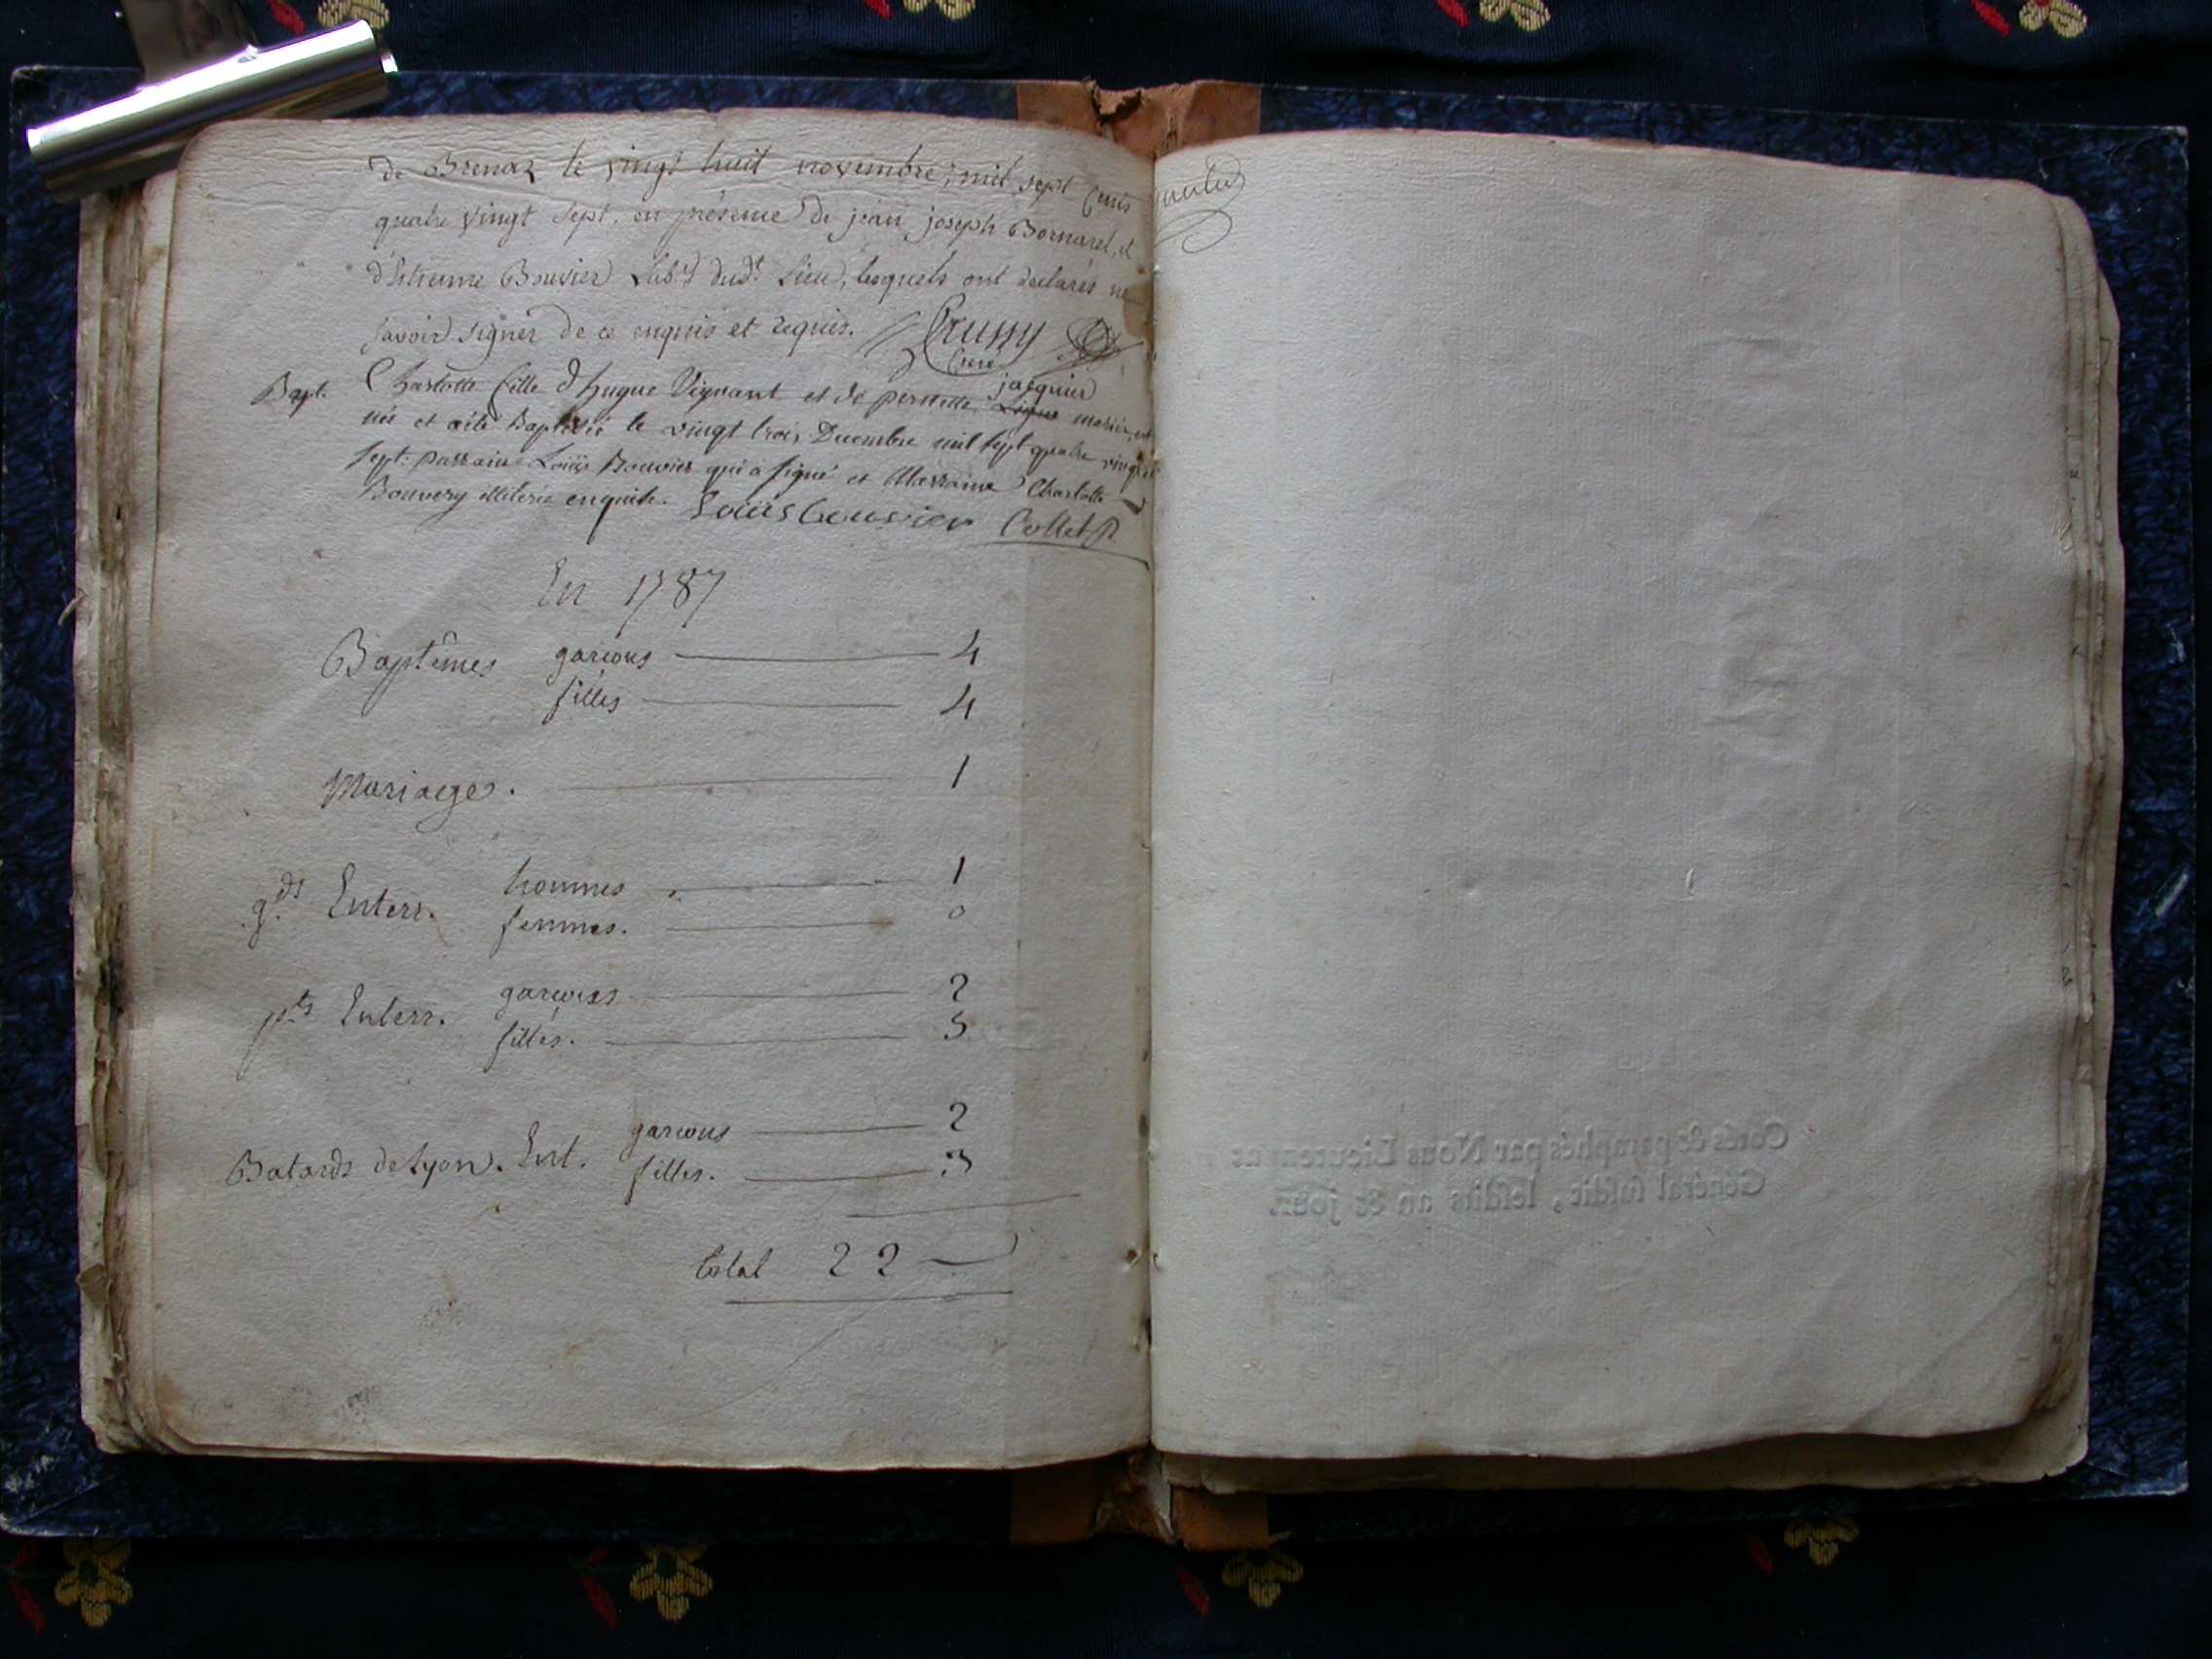 de Brenaz le vingt huit novembre, mil sept cents
quatre vingt sept, en présence de jean joseph Bornarel, et
d'Etienne Bouvier Lab.rs dud.t Lieu, lesquels ont declarés ne
savoir signer de ce enquis et requis. Crussy
Curé
jacquier
Bapt. Charlotte fille d'hugue Vignant et de pernette mariés, est
née et a été Baptisée le vingt trois Decembre mil sept quatre vingt et
sept. parrain Louis Bouvier qui a signé et Marraine Charlotte
Bouvery illiterée enquise. Louis bouvier Collet
En 1787
Baptêmes garcons 4
filles 4
Mariage. 1
g.ds Enterr. hommes 1
femmes. 0
p.ts Enterr. garcons 2
filles. 5
Batards de Lyon. Ent. garcons 2
filles. 3
total 22
Cotés & paraphés par Nous Lieutenant
Général susdit, lesdits an & jour.